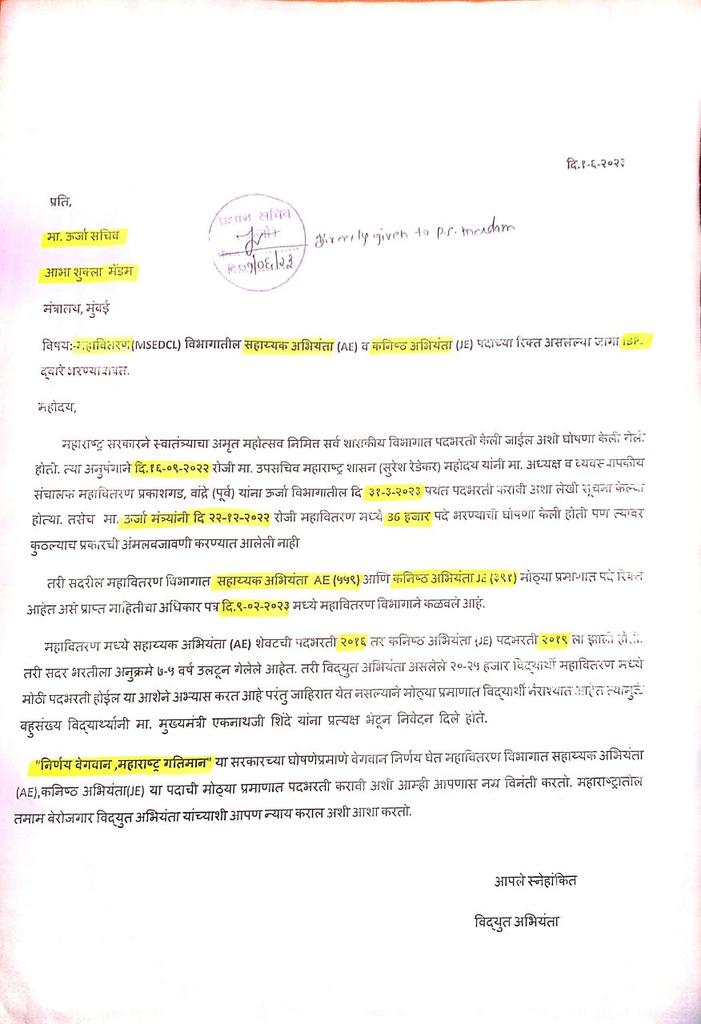 दि.१-६-२०२३
प्रति,
मा. ऊर्जा सचिव
प्रधान सचिव
directly given to p.s. madam
दि.०१/०६/२३
आभा शुक्ला मॅडम
मंत्रालय, मुंबई
विषय:-महावितरण(MSEDCL) विभागातील सहाय्यक अभियंता (AE) व कनिष्ठ अभियंता (JE) पदाच्या रिक्त असलेल्या जागा
द्वारे भरण्याबाबत.
महोदय,
महाराष्ट्र सरकारने स्वातंत्र्याचा अमृत महोत्सव निमित्त सर्व शासकीय विभागात पदभरती केली जाईल अशी घोषणा केली गेली
होती. त्या अनुषंगाने दि.१६-०९-२०२२ रोजी मा. उपसचिव महाराष्ट्र शासन (सुरेश रेडेकर) महोदय यांनी मा. अध्यक्ष व व्यवस्थापकीय
संचालक महावितरण प्रकाशगड, वांद्रे (पूर्व) यांना ऊर्जा विभागातील दि ३१-३-२०२३ पर्यंत पदभरती करावी अशा लेखी सूचना केल्या
होत्या. तसेच मा. ऊर्जा मंत्र्यांनी दि २२-१२-२०२२ रोजी महावितरण मध्ये ३६ हजार पदे भरण्याची घोषणा केली होती पण त्यावर
कुठल्याच प्रकारची अंमलबजावणी करण्यात आलेली नाही
तरी सदरील महावितरण विभागात सहाय्यक अभियंता AE (५५९) आणि कनिष्ठ अभियंता JE (३९१) मोठ्या प्रमाणात पदे रिक्त
आहेत असे प्राप्त माहितीचा अधिकार पत्र दि.९-०२-२०२३ मध्ये महावितरण विभागाने कळवलं आहे.
महावितरण मध्ये सहाय्यक अभियंता (AE) शेवटची पदभरती २०१६ तर कनिष्ठ अभियंता (JE) पदभरती २०१९ ला झाली होती.
तरी सदर भरतीला अनुक्रमे ७-५ वर्ष उलटून गेलेले आहेत. तरी विद्युत अभियंता असलेले २०-२५ हजार विद्यार्थी महावितरण मध्ये
मोठी पदभरती होईल या आशेने अभ्यास करत आहे परंतु जाहिरात येत नसल्याने मोठ्या प्रमाणात विद्यार्थी नैराश्यात आहेत त्यामुळे
बहुसंख्य विद्यार्थ्यांनी मा. मुख्यमंत्री एकनाथजी शिंदे यांना प्रत्यक्ष भेटून निवेदन दिले होते.
"निर्णय वेगवान ,महाराष्ट्र गतिमान" या सरकारच्या घोषणेप्रमाणे वेगवान निर्णय घेत महावितरण विभागात सहाय्यक अभियंता
(AE),कनिष्ठ अभियंता(JE) या पदाची मोठ्या प्रमाणात पदभरती करावी अशी आम्ही आपणास नम्र विनंती करतो. महाराष्ट्रातील
तमाम बेरोजगार विद्युत अभियंता यांच्याशी आपण न्याय कराल अशी आशा करतो.
आपले स्नेहांकित
विद्युत अभियंता